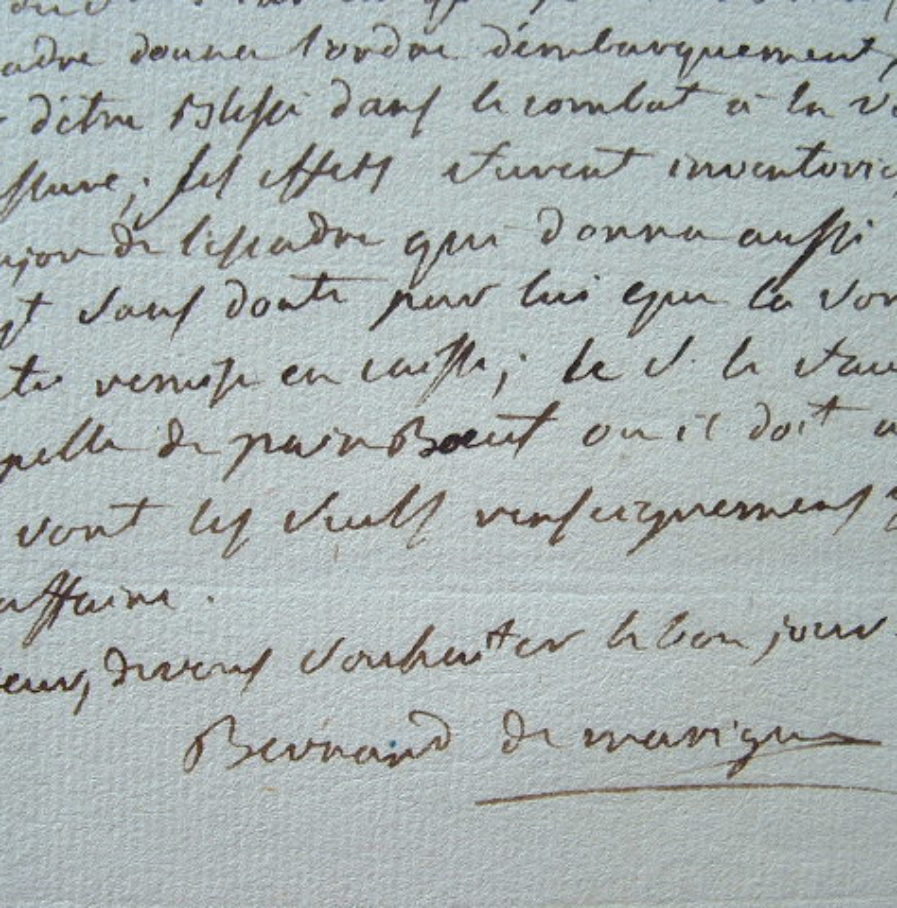 adre donna l'ordre d'embarquement,
d'être Blessé dans le combat à la
ssure; ses effets furent inventorié
ajor de l'escadre qui donna aussi
sans doute pour lui que la
remise en caisse; le S. le
pelle de painBoeuf ou il doit a
sont les seuls renseignemens
affaire.
eur, de vous souhaiter le bon jour.
Bernard de marigny